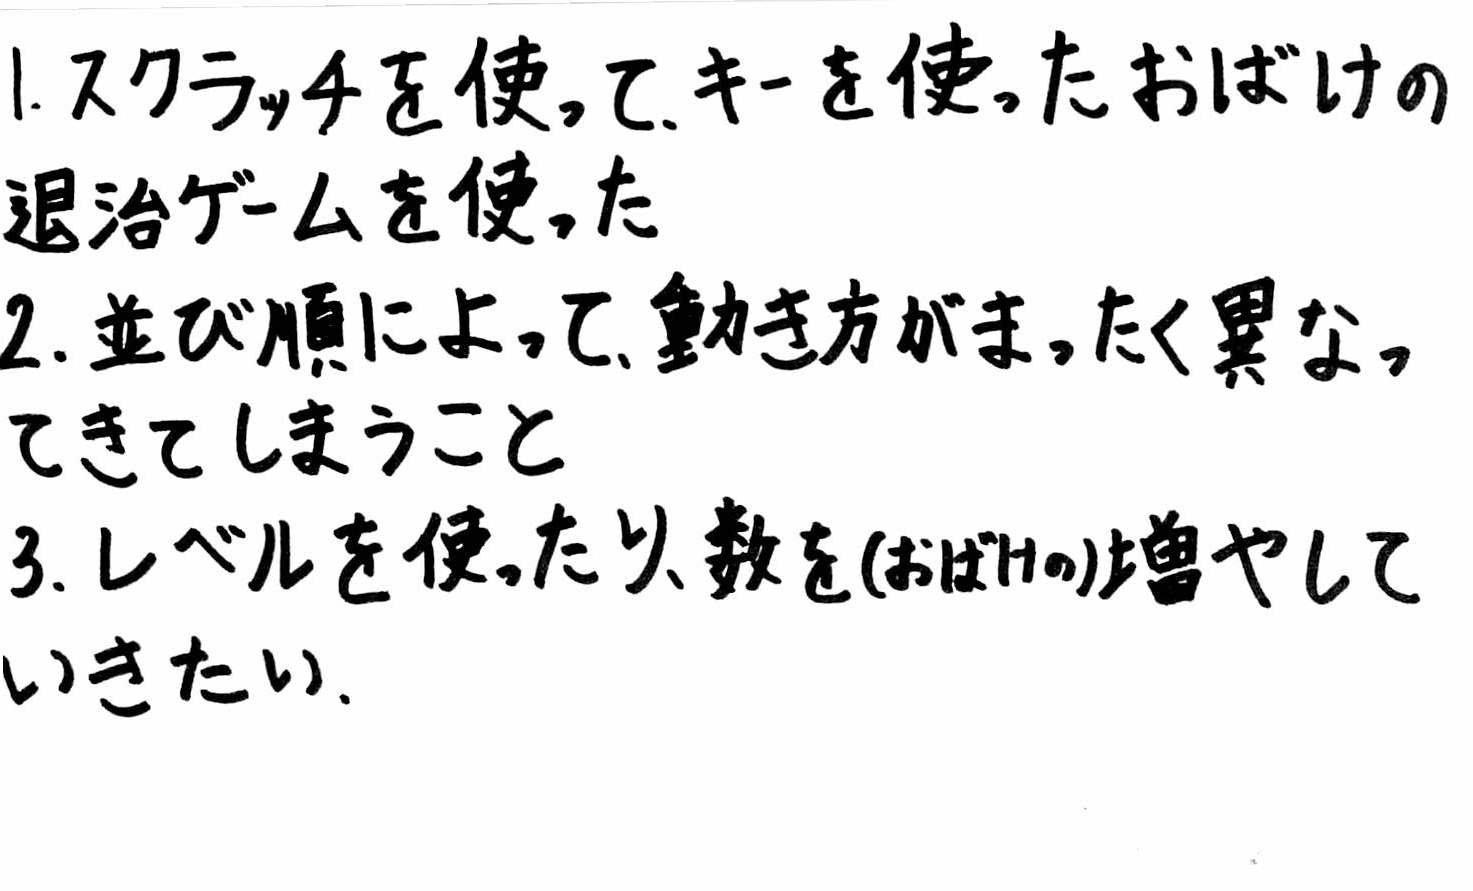 1.スクラッチを使って、キーを使ったおばけの
退治ゲームを使った
2.並び順によって、動き方がまったく異なっ
てきてしまうこと
3.レベルを使ったり、数を(おばけの)増やして
いきたい.